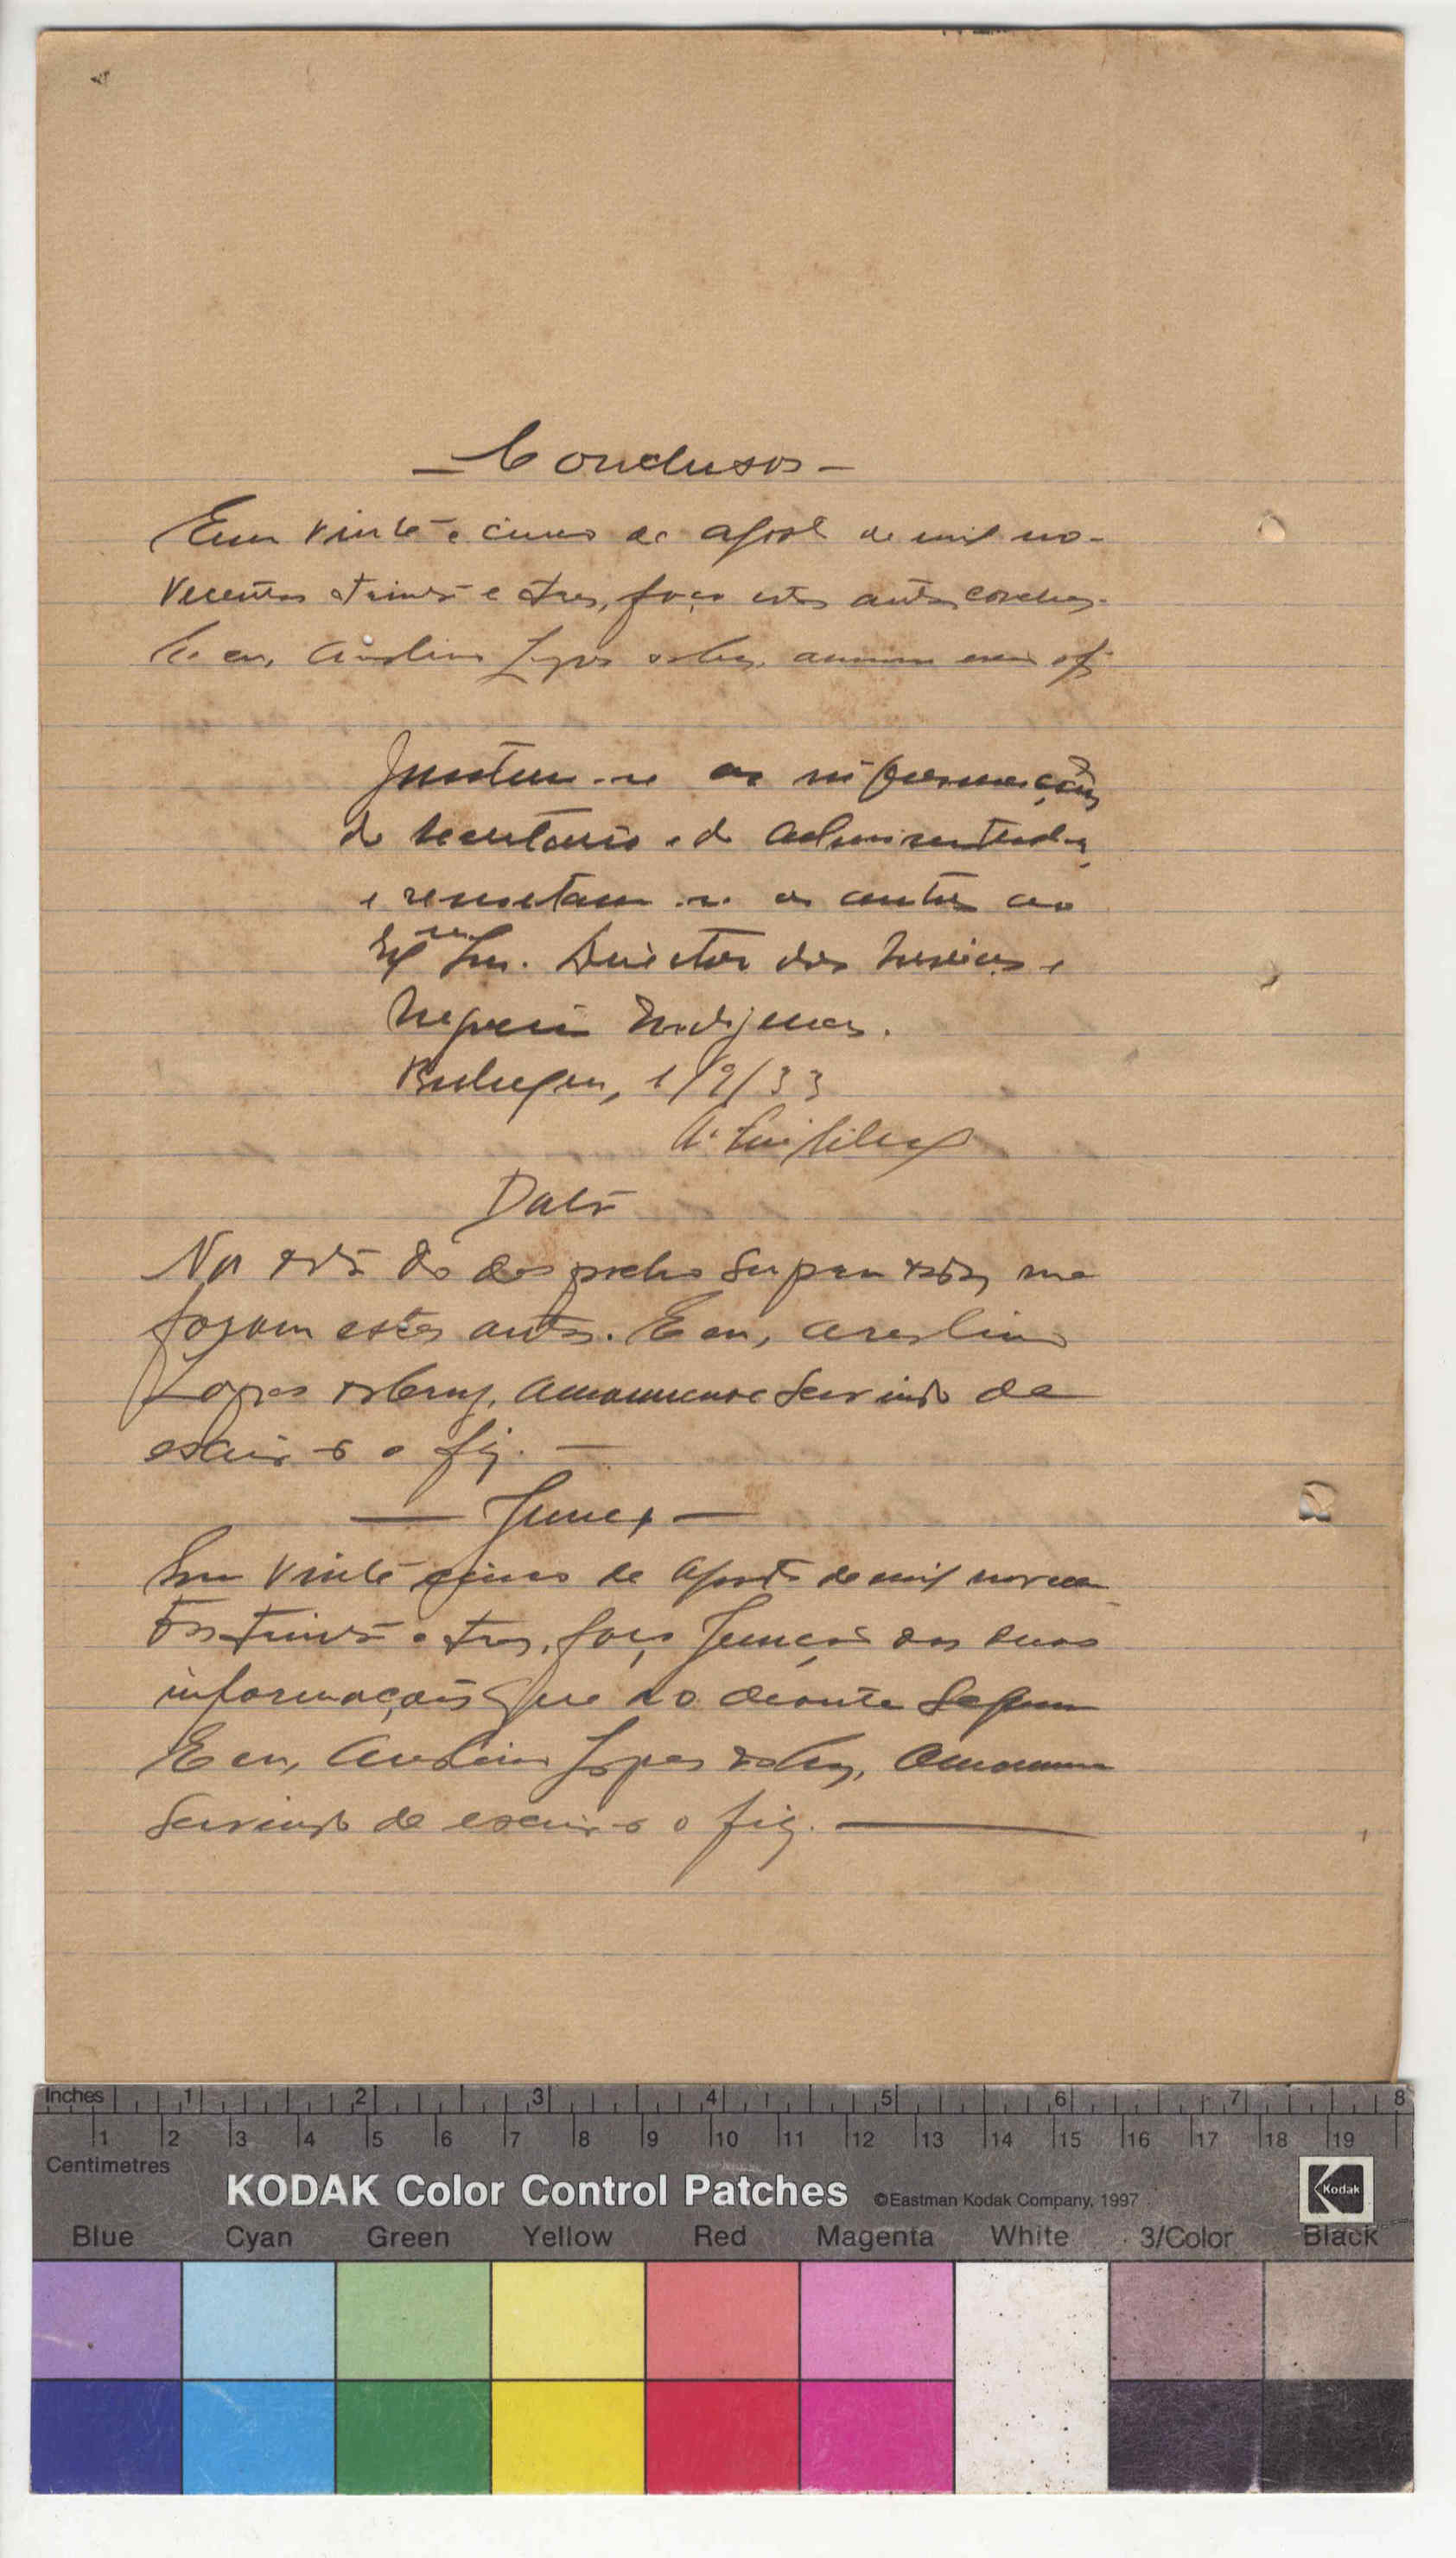 - Conclusos -
Em vinte e cinco de agosto de mil no-
vecentos e trinta e tres, faço estes autos conclusos.
E eu, Lopes
Juntem-se as informações
do secretario e do administrador,
e remetam-se os autos ao
Exmo Snr. Director dos Serviços e
Negocios Indigenas.
1/9/33
Data
Na data do despacho supra me
foram estes autos. E eu,
Lopes amanuense servindo de
escrivão o fiz. —
— Junção —
Em vinte cinco de agosto de mil novecen-
tos trinta e tres, faço junção das duas
informações que ao deante seguem
E eu, Lopes amanuense
servindo de escrivão o fiz. —
Inches 1 2 3 4 5 6 7 8
1 2 3 4 5 6 7 8 9 10 11 12 13 14 15 16 17 18 19
Centimetres
KODAK Color Control Patches ©Eastman Kodak Company, 1997 Kodak
Blue Cyan Green Yellow Red Magenta White 3/Color Black